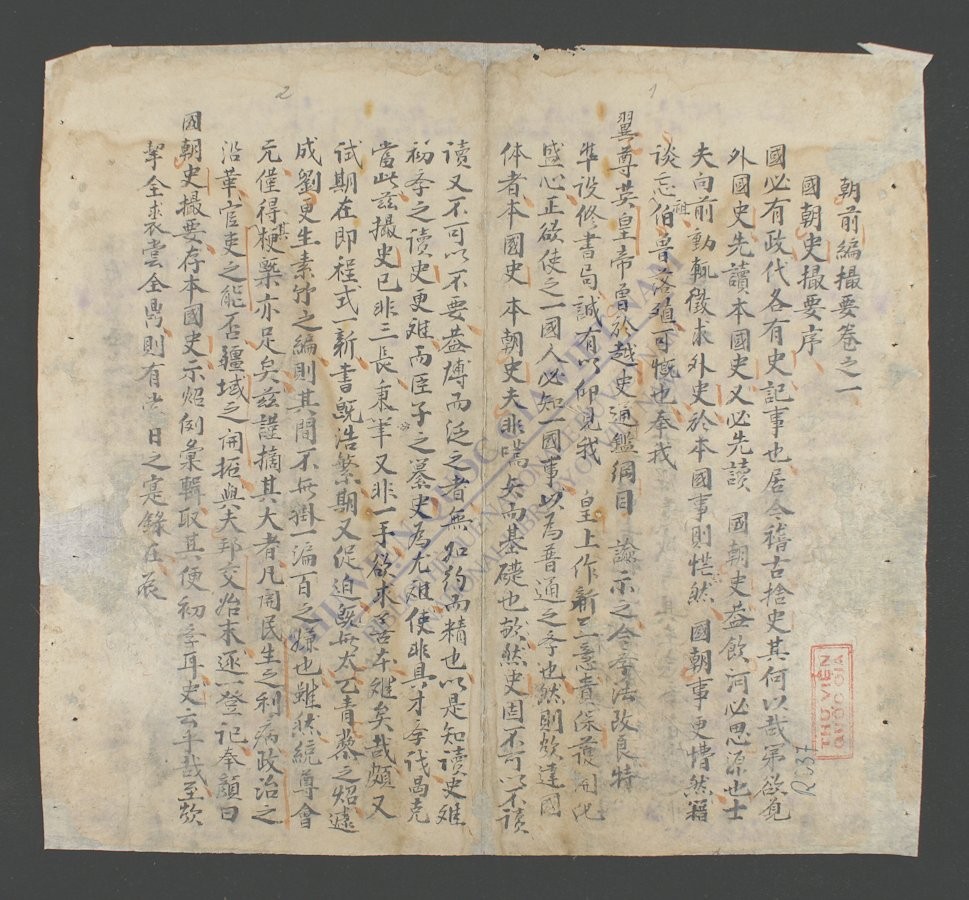 1
朝前編撮要卷之一
國朝史撮要序
國必有政代各有史記事也居今稽古捨史其何以哉第欲覓
外國史先讀本國史又必先讀 國朝史益飲河必思源也士
夫向前動輒徵求外史於本國事則恍然 國朝事更懵然籍
談忘祖伯魯落殖可慨也奉我
翼尊英皇帝曾於越史通鑑綱目 諭示之今學法改良特
準設修書局誠有以仰見我 皇上作新三意責保護開化
盛心正欲使之一國人必知一國事以為普通之學也然則欲達國
体者本國史 本朝史夫非嚆矢而基礎也歟然史固不可以不讀
2
讀又不可以不要益博而泛之者無如約而精也以是知讀史难
初季之讀史更难而臣子之纂史為尤难使非具才學識曷克
當此茲撮史已非三長秉筆又非一手欲求善本难矣哉頗又
試期在即程式一新書既浩繁期又促迫既無太乙青藜之炤遽
成劉更生素竹之編則其間不無掛一漏百之嫌也雖然統尊會
元僅得其梗槩亦足矣茲謹摘其大者凡關民生之利病政治之
沿革官吏之能否疆域之開拓與夫邦交始末逐一登記奉顏曰
國朝史撮要存本國史示炤例彙輯取其便初季耳史云乎哉至欸
挈全求裳嘗全鼎則有當日之寔錄在辰
R.037
THƯ VIỆN
QUỐC GIA